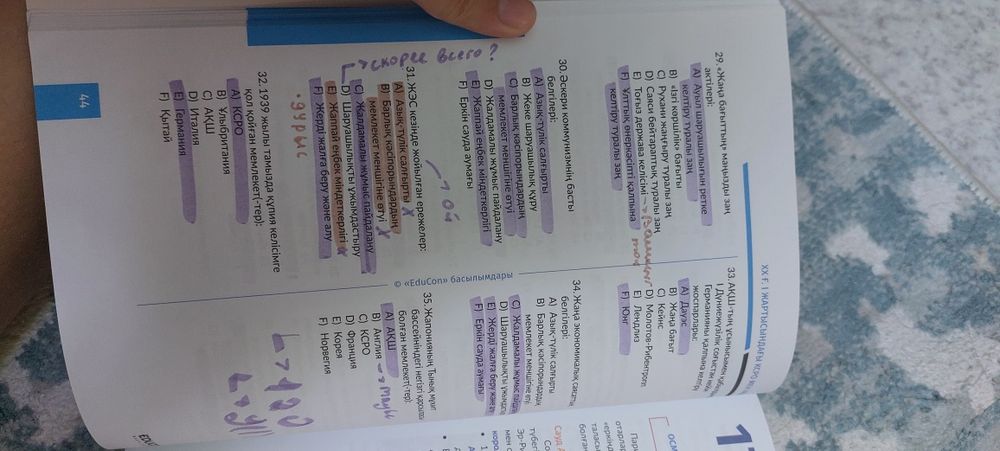 XX Ғ. I ЖАРТЫСЫНДАҒЫ КСРО
29. «Жаңа бағыттың» маңызды заң
актілері:
A) Ауыл шаруашылығын ретке
келтіру туралы заң
B) «Ізгі көршілік» бағыты
C) Рухани жаңғыру туралы заң
D) Саяси бейтараптық туралы заң
E) Тоғыз держава келісімі
F) Ұлттық өнеркәсіпті қалпына
келтіру туралы заң
30. Әскери коммунизмнің басты
белгілері:
A) Азық-түлік салғырты
B) Жеке шаруашылық құру
C) Барлық кәсіпорындардың
мемлекет меншігіне өтуі
D) Жалдамалы жұмыс пайдалану
E) Жаппай еңбек міндеткерлігі
F) Еркін сауда аумағы
скорее всего?
ой
31. ЖЭС кезінде жойылған ережелер:
A) Азық-түлік салғырты x
B) Барлық кәсіпорындардың
мемлекет меншігіне өтуі x
C) Жалдамалы жұмыс пайдалану
D) Шаруашылықты ұжымдастыру
E) Жаппай еңбек міндеткерлігі x
F) Жерді жалға беру және алу
дұрыс
32. 1939 жылы тамызда құпия келісімге
қол қойған мемлекет(-тер):
A) КСРО
B) Ұлыбритания
C) АҚШ
D) Италия
E) Германия
F) Қытай
33. АҚШ-тың ұсынысымен
I Дүниежүзілік соғыстан кейін
Германияны қалпына келтіру
жоспарлары:
A) Дауэс
B) Жаңа бағыт
C) Кейнс
D) Молотов-Риббентроп
E) Лендлиз
F) Юнг
34. Жаңа экономикалық саясаттың
белгілері:
A) Азық-түлік салғырты
B) Барлық кәсіпорындардың
мемлекет меншігіне өтуі
C) Жалдамалы жұмыс
D) Шаруашылықты
E) Жерді жалға беру және
F) Еркін сауда аумағы
35. Жапонияның Тынық мұхит
бассейніндегі негізгі қарсыласы
болған мемлекет(-тер):
A) АҚШ
B) Англия
C) КСРО
D) Франция
E) Корея
F) Норвегия
44
© «EduCon» басылымдары